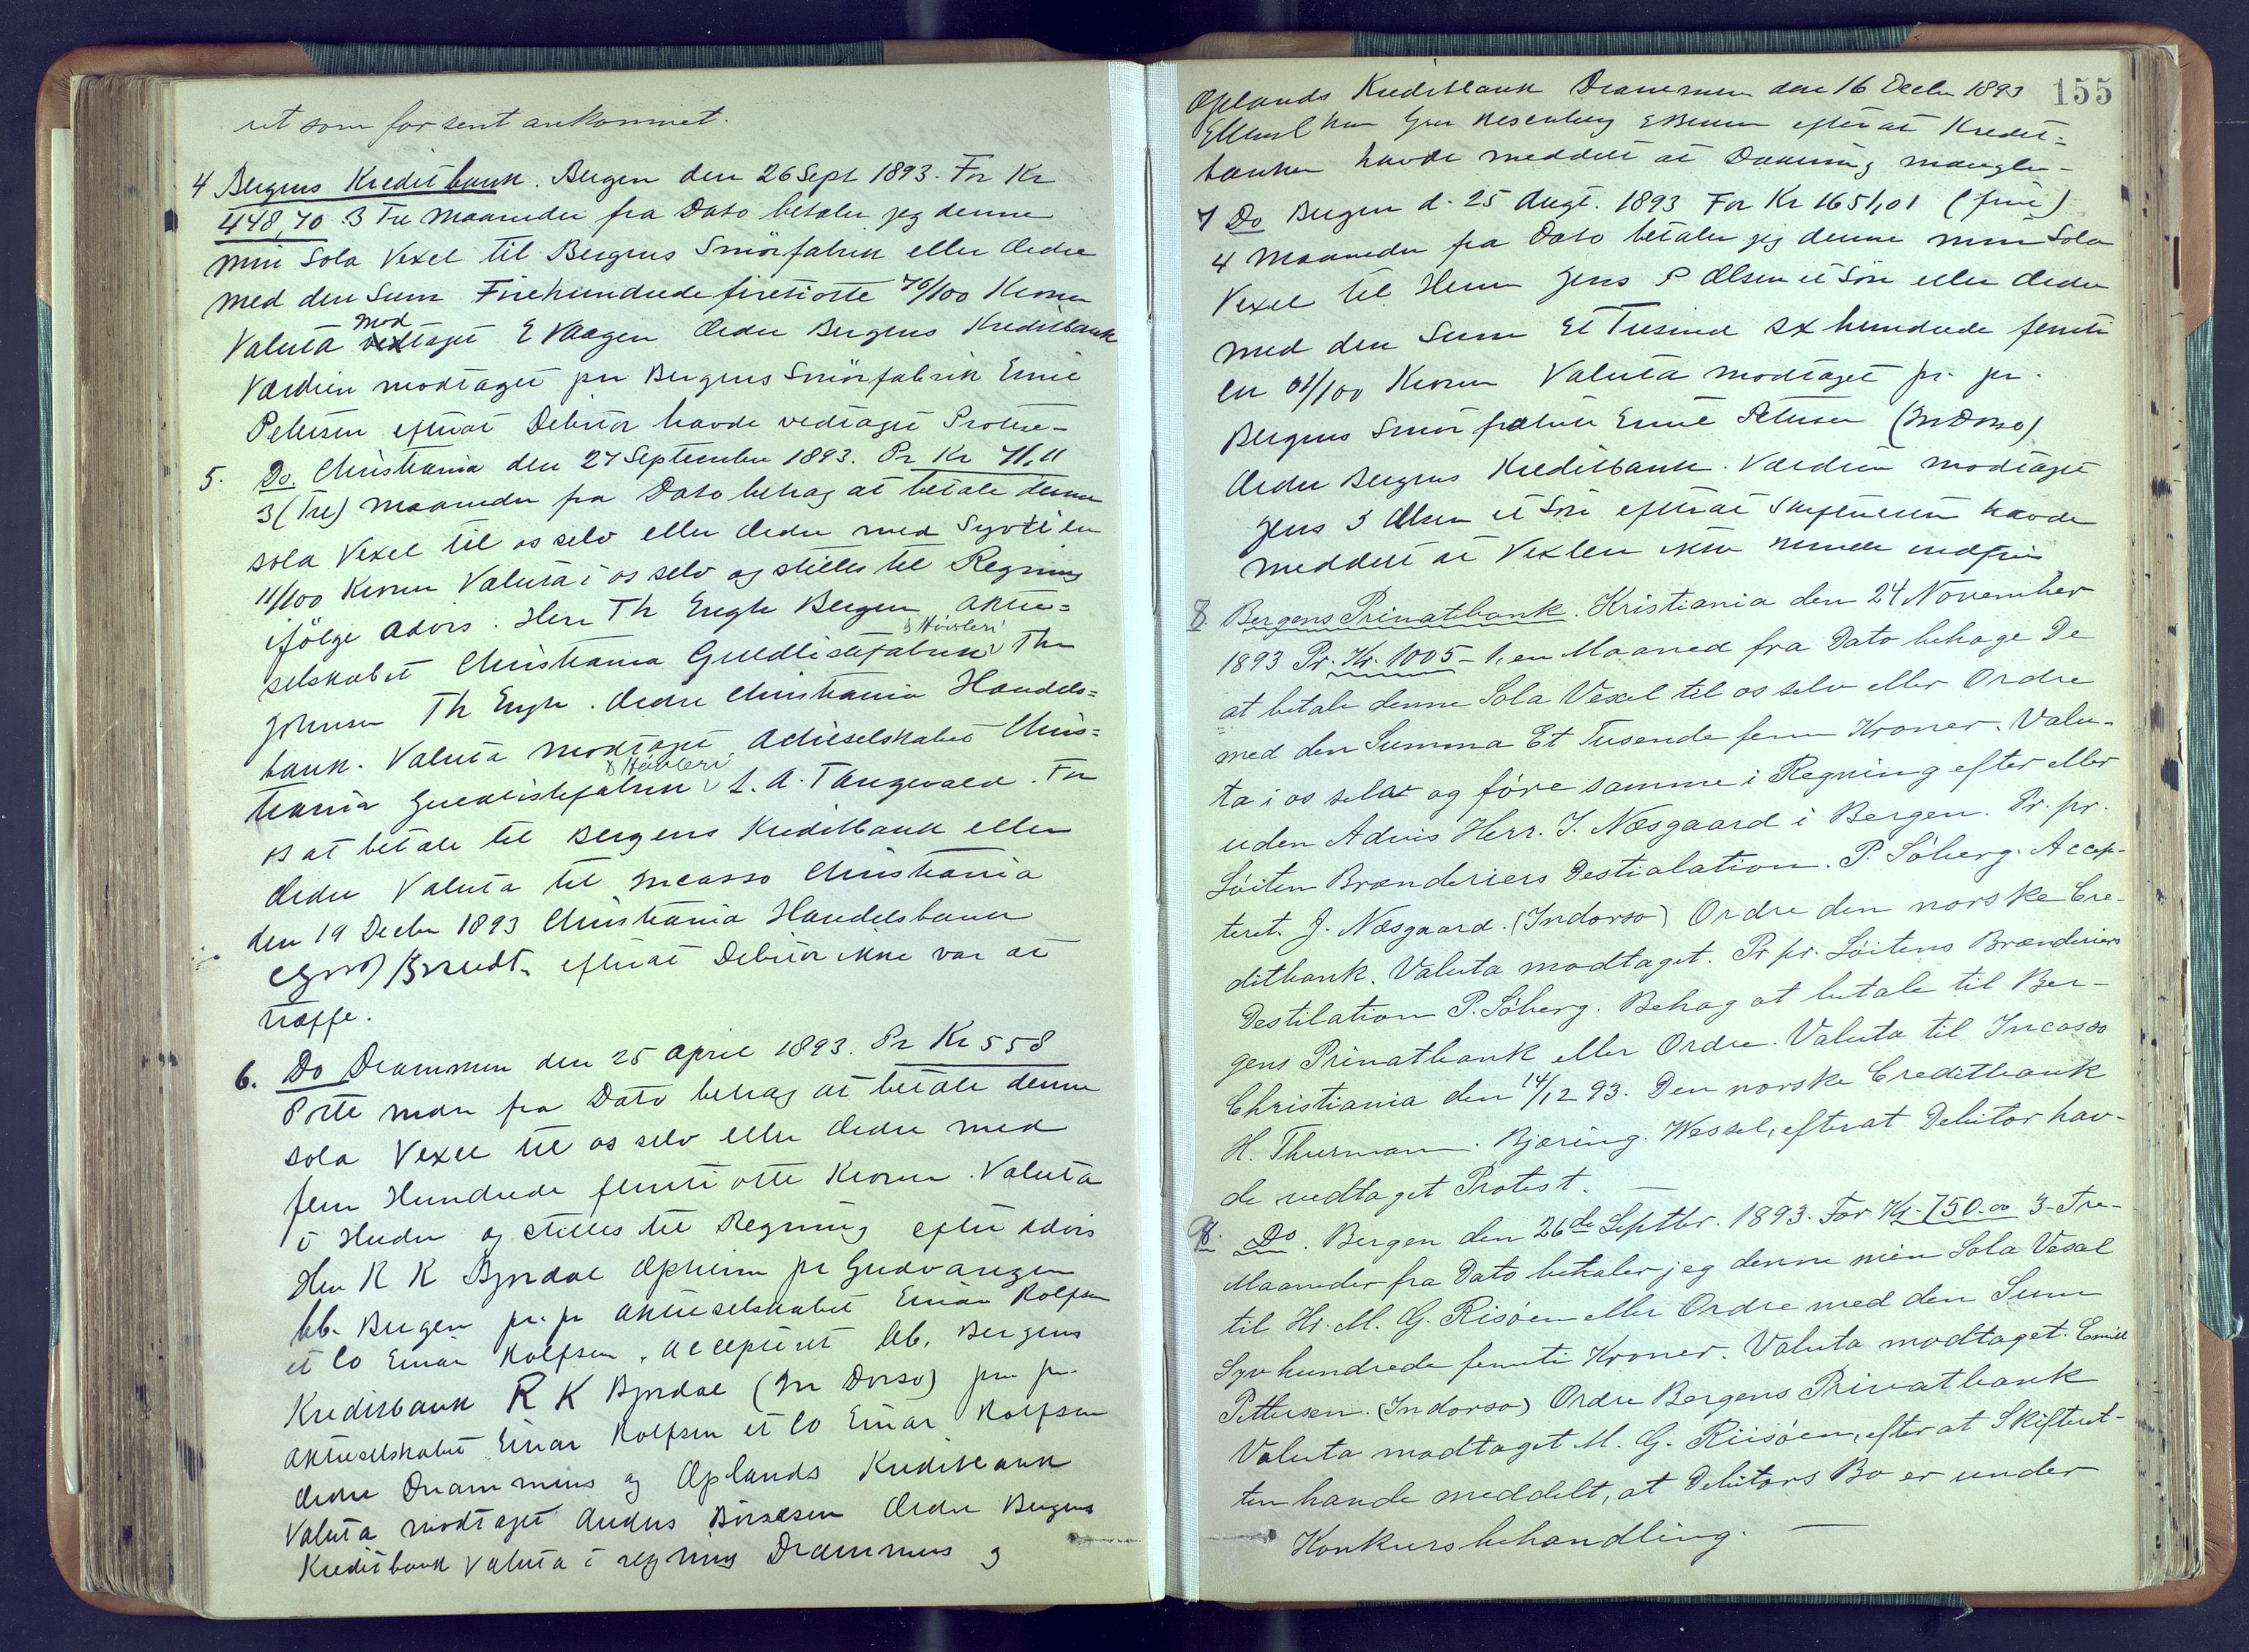 ret som for sent ankommet.
4 Bergens Kreditbank. Bergen den 26 Sept 1893. For Kr
448,70. 3 Tre Maaneder fra Dato betaler jeg denne
min Sola Vexel til Bergens Smörfabrik eller Ordre
med den Sum Firehundrede firetiotte 70/100 Kroner
Valuta modtaget E Vaagen Ordre Bergens Kreditbank
Værdien modtaget pr Bergens Smörfabrik Emil
Pettersen efterat Debitor havde vedtaget Protest
5. Do. Christiania den 27 September 1893. Pr Kr 71,11
3 (Tre) Maaneder fra Dato behag at betale denne
sola Vexel til os selv eller Ordre med Sytti en
11/100 Kroner Valuta i os selv og stilles til Regning
ifölge Advis. Herr Th Engh Bergen. Aktie=
selskabet Christiania Guldlistefabrik & Hövleri Th
Johnsen Th Engh. Ordre Christiania Handels=
bank. Valuta modtaget, Actieselskabet Chris=
tiania Guldlistefabrik & Hövleri L. A. Tangevald. For
os at betale til Bergens Kreditbank eller
Ordre Valuta til Incasso Christiania
den 19 Decbr 1893 Christiania Handelsbank
efterat Debitor ikke var at
træffe.
6. Do Drammen den 25 April 1893. Pr Kr 558
Otte mdr fra Dato behag at betale denne
sola Vexel til os selv eller Ordre med
fem Hundrede femti otte Kroner. Valuta
i Hænder og stilles til Regning efter Advis
Herr K K Bjørdal Opheim pr Gudvangen
bb. Bergen pr. pr Aktieselskabet Einar Rolfsen
et Co Einar Rolfsen. Accepteret bb. Bergens
Kreditbank R K Bjordal (In Dorso) pr. pr.
Aktieselskabet Einar Rolfsen et Co Einar Rolfsen
Ordre Drammens og Oplands Kreditbank
Valuta modtaget Anders Börsesen Ordre Bergens
Kreditbank Valuta i regning Drammens og
155
Oplands Kreditbank Drammen den 16 Decbr 1893
efterat Kredit=
banken havde meddelt at Dækning mangler
7 Do Bergen d. 25 Augt. 1893 For Kr 1651,01 (fire)
4 Maaneder fra Dato betaler jeg denne min Sola
Vexel til Herrer Jens S Olsen et Sön eller Ordre
med den Sum Et Tusind sex hundrede femti
en 01/100 Kroner Valuta modtaget pr. pr.
Bergens Smör fabrik Emil Pettersen (In Dorso)
Ordre Bergens Kreditbank. Værdien modtaget
Jens S Olsen et Sön efterat Skifteretten havde
meddelt at Vexlen ikke kunde indfries
8. Bergens Privatbank. Kristiania den 24 November
1893 Pr. Kr. 1005 - 1, en Maaned fra Dato behage De
at betale denne Sola Vexel til os selv eller Ordre
med den Summa Et Tusende fem Kroner. Valu-
ta i os selv og före samme i Regning efter eller
uden Advis Herr. J. Næsgaard i Bergen. Pr. pr.
Löiten Brænderiers Destialation. P. Söberg. Accep-
teret. J. Næsgaard. (Indorso) Ordre den norske Cre-
ditbank. Valuta modtaget. Pr pr. Löitens Brænderiers
Destilation P. Söberg. Behag at betale til Ber-
gens Privatbank eller Ordre. Valuta til Incasso
Christiania den 14/12 93. Den norske Creditbank
H. Thurmann. Bjæring. Wessel, efterat Debitor hav-
de vedtaget Protest.
9. Do. Bergen den 26de Septbr. 1893. For Kr. 750.00 3-Tre-
Maaneder fra Dato betaler jeg denne min Sola Vexel
til Hr. M. G. Risöen eller Ordre med den Sum
Syv hundrede femti Kroner. Valuta modtaget. Emil
Pettersen. (Indorso) Ordre Bergens Privatbank
Valuta modtaget M. G. Riisöen, efter at Skifteret-
ten havde meddelt, at Debitors Bo er under
Konkursbehandling.